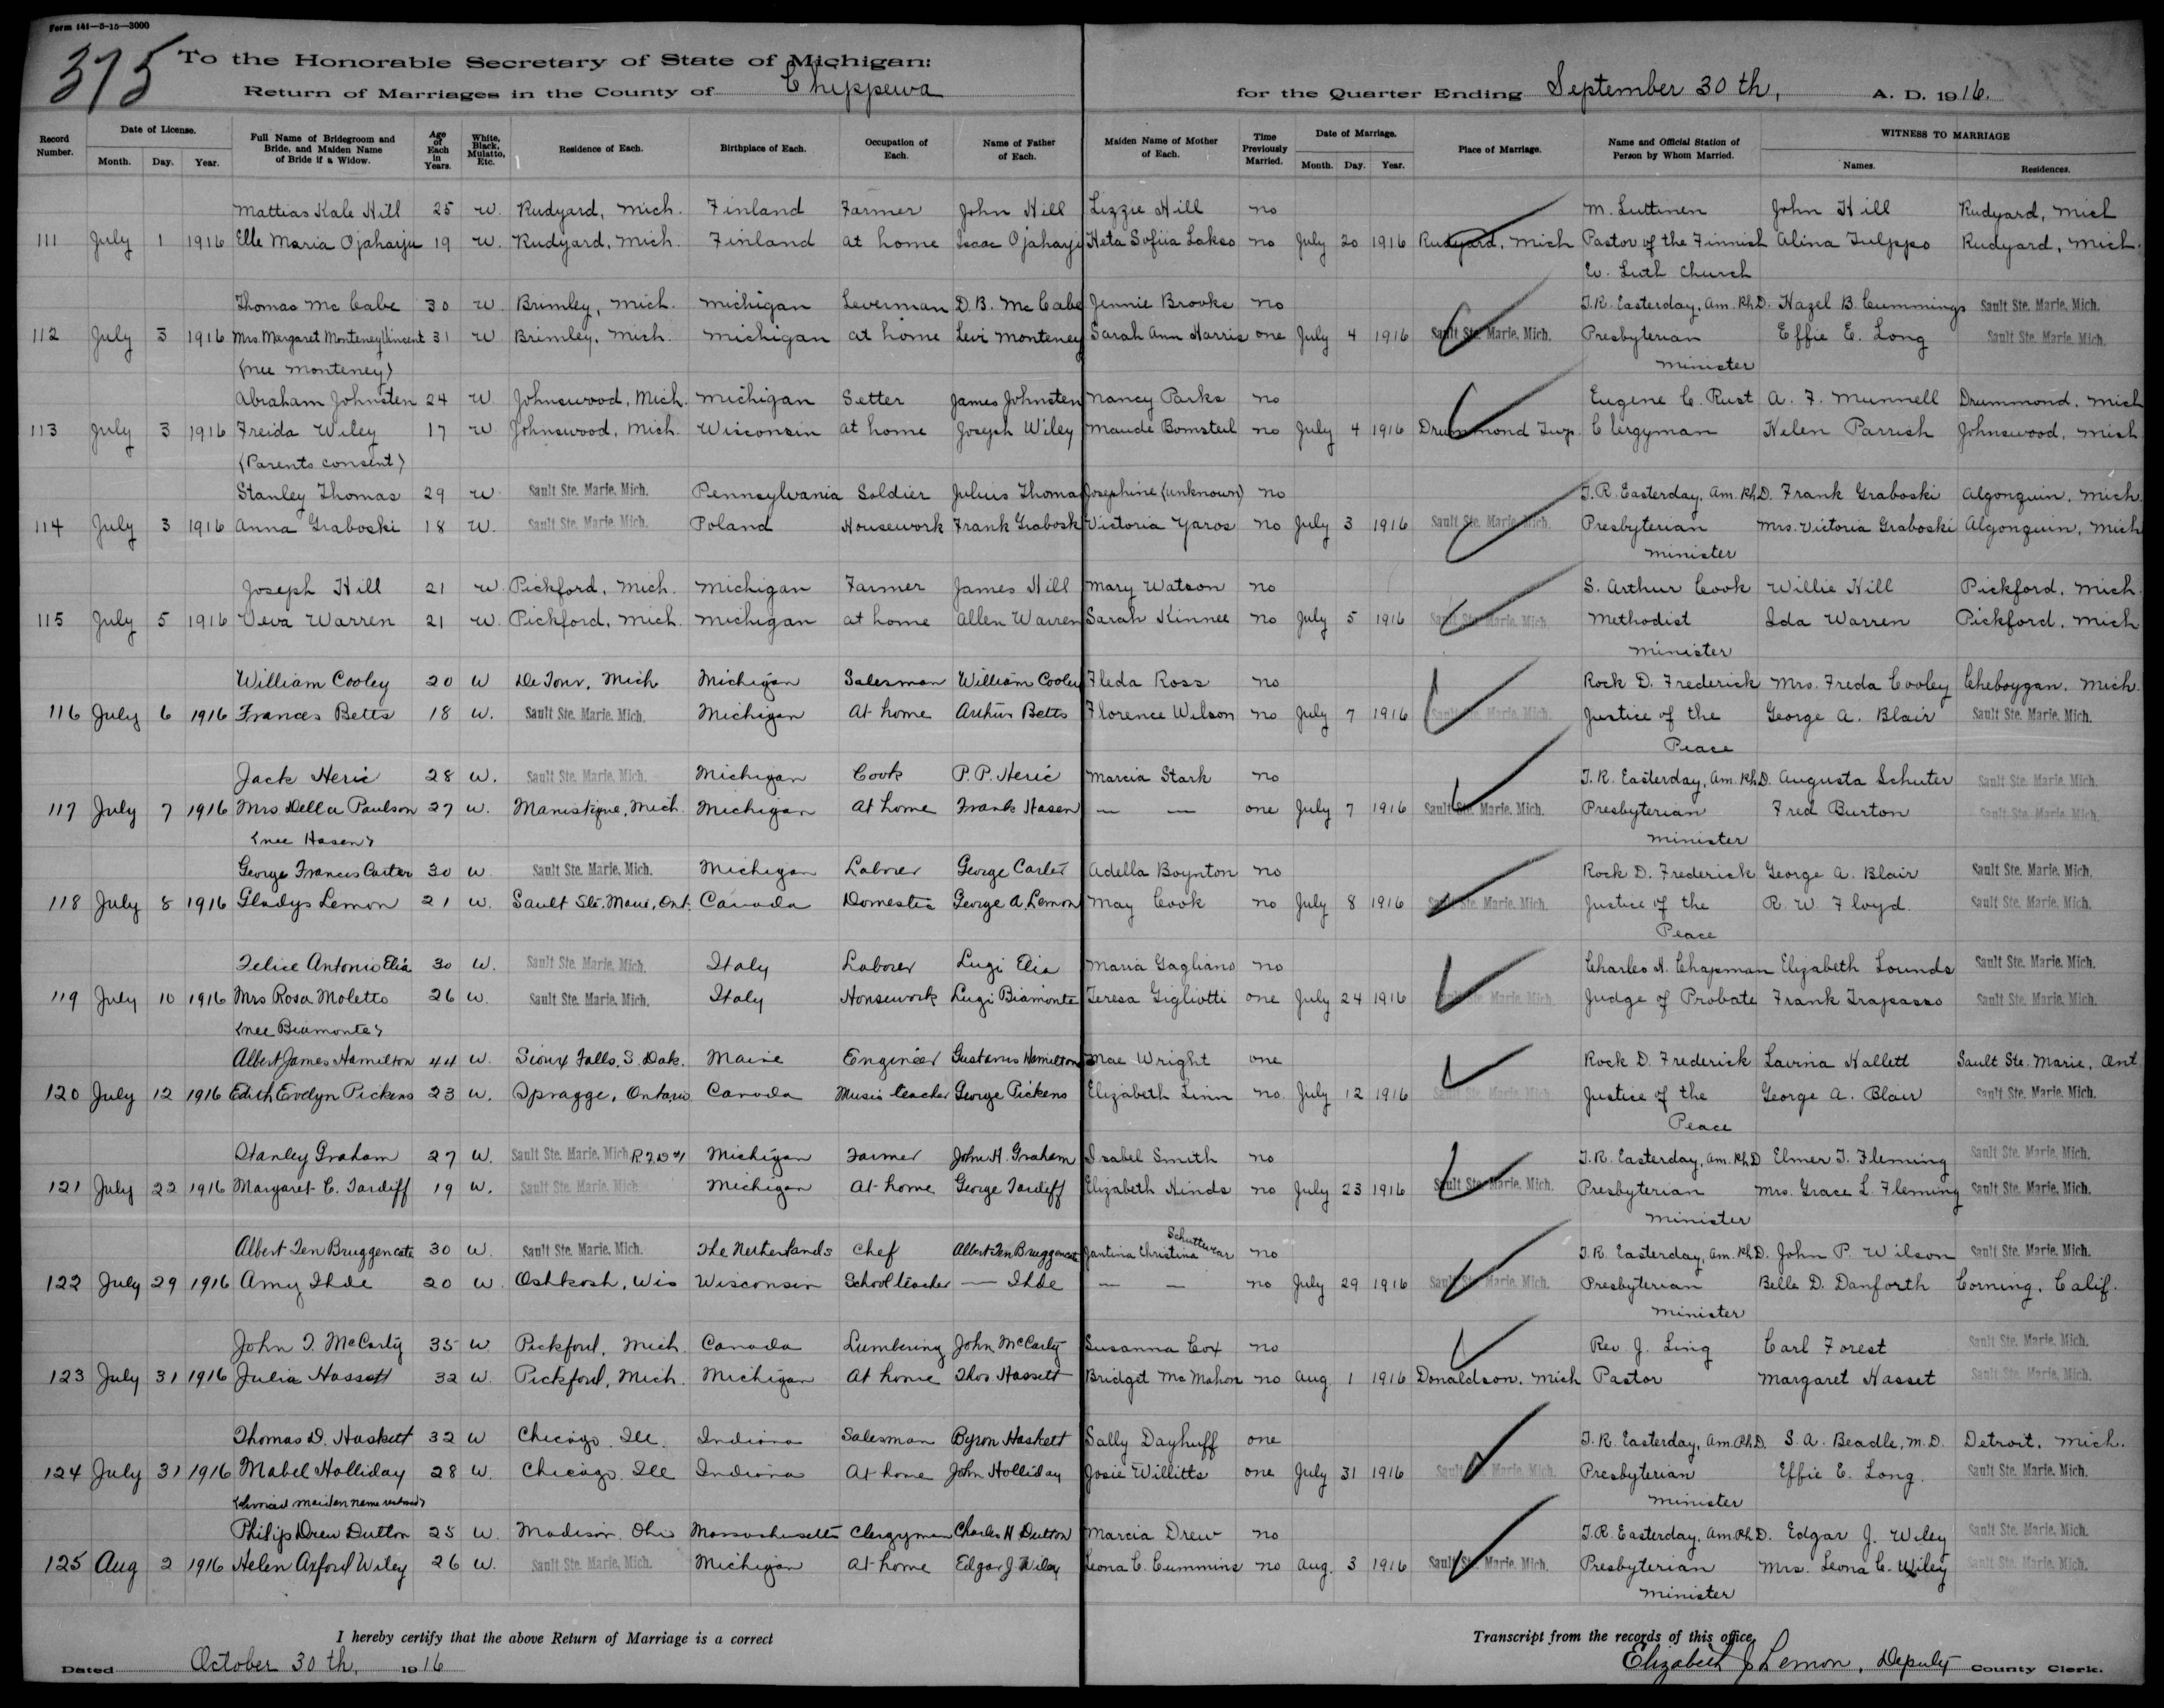 Form 141—5-15—3000
375
To the Honorable Secretary of State of Michigan:
Return of Marriages in the County of Chippewa for the Quarter Ending September 30th, A. D. 1916.
Record Number. Date of License. Month. Day. Year. Full Name of Bridegroom and Bride, and Maiden Name of Bride if a Widow. Age of Each in Years. White, Black, Mulatto, Etc. Residence of Each. Birthplace of Each. Occupation of Each. Name of Father of Each. Maiden Name of Mother of Each. Time Previously Married. Date of Marriage. Month. Day. Year. Place of Marriage. Name and Official Station of Person by Whom Married. WITNESS TO MARRIAGE Names. Residences.
Mattias Kale Hill 25 W. Rudyard, Mich. Finland Farmer John Hill Lizzie Hill no M. Luttinen John Hill Rudyard, Mich
111 July 1 1916 Elle Maria Ojaharju 19 W. Rudyard, Mich. Finland at home Isaac Ojaharju Heta Sofiia Lakso no July 20 1916 Rudyard, Mich Pastor of the Finnish Alina Tulppo Rudyard, Mich.
Ev. Luth Church
Thomas McCabe 30 W. Brimley, Mich. Michigan Leverman D. B. McCabe Jennie Brooke no T. R. Easterday, Am. Ph.D. Hazel B. Cummings Sault Ste. Marie, Mich.
112 July 3 1916 Mrs. Margaret Monteney Vincent 31 W Brimley, Mich. Michigan at home Levi Monteney Sarah Ann Harris one July 4 1916 Sault Ste. Marie, Mich. Presbyterian Effie E. Long Sault Ste. Marie, Mich.
(nee Monteney) minister
Abraham Johnsten 24 W. Johnswood, Mich. Michigan Setter James Johnsten Nancy Parks no Eugene C. Rust A. F. Munnell Drummond, Mich
113 July 3 1916 Freida Wiley 17 W. Johnswood, Mich. Wisconsin at home Joseph Wiley Maude Bomsteil no July 4 1916 Drummond Twp. Clergyman Helen Parrish Johnswood, Mich
(Parents consent)
Stanley Thomas 29 W Sault Ste. Marie, Mich. Pennsylvania Soldier Julius Thomas Josephine (unknown) no T. R. Easterday, Am. Ph.D. Frank Graboski Algonquin, Mich.
114 July 3 1916 Anna Graboski 18 W. Sault Ste. Marie, Mich. Poland Housework Frank Graboski Victoria Yaros no July 3 1916 Sault Ste. Marie, Mich. Presbyterian Mrs. Victoria Graboski Algonquin, Mich
minister
Joseph Hill 21 W. Pickford, Mich. Michigan Farmer James Hill Mary Watson no S. Arthur Cook Willie Hill Pickford, Mich.
115 July 5 1916 Veva Warren 21 W. Pickford, Mich. Michigan at home Allen Warren Sarah Kinnee no July 5 1916 Sault Ste. Marie, Mich. Methodist Ida Warren Pickford, Mich
minister
William Cooley 20 W DeTour, Mich Michigan Salesman William Cooley Fleda Ross no Rock D. Frederick Mrs. Freda Cooley Cheboygan, Mich.
116 July 6 1916 Frances Betts 18 W. Sault Ste. Marie, Mich. Michigan At home Arthur Betts Florence Wilson no July 7 1916 Sault Ste. Marie, Mich. Justice of the George A. Blair Sault Ste. Marie, Mich.
Peace
Jack Heric 28 W. Sault Ste. Marie, Mich. Michigan Cook P. P. Heric Marcia Stark no T. R. Easterday, Am. Ph.D. Augusta Schuter Sault Ste. Marie, Mich.
117 July 7 1916 Mrs Della Paulson 27 W. Manistique, Mich. Michigan At home Frank Hasen — — one July 7 1916 Sault Ste. Marie, Mich. Presbyterian Fred Burton Sault Ste. Marie, Mich.
(nee Hasen) minister
George Francis Carter 30 W Sault Ste. Marie, Mich. Michigan Laborer George Carter Adella Boynton no Rock D. Frederick George A. Blair Sault Ste. Marie, Mich.
118 July 8 1916 Gladys Lemon 21 W. Sault Ste. Marie, Ont. Canada Domestic George A. Lemon May Cook no July 8 1916 Sault Ste. Marie, Mich. Justice of the R. W. Floyd. Sault Ste. Marie, Mich.
Peace
Felice Antonio Elia 30 W. Sault Ste. Marie, Mich. Italy Laborer Luigi Elia Maria Gagliano no Charles H. Chapman Elizabeth Lounds Sault Ste. Marie, Mich.
119 July 10 1916 Mrs Rosa Moletto 26 W. Sault Ste. Marie, Mich. Italy Housework Luigi Biamonte Teresa Gigliotti one July 24 1916 Sault Ste. Marie, Mich. Judge of Probate Frank Trapasso Sault Ste. Marie, Mich.
(nee Biamonte)
Albert James Hamilton 44 W. Sioux Falls, S. Dak. Maine Engineer Gustavus Hamilton Mae Wright one Rock D. Frederick Lavina Hallett Sault Ste. Marie, Ont
120 July 12 1916 Edith Evelyn Pickens 23 W. Spragge, Ontario Canada Music teacher George Pickens Elizabeth Linn no. July 12 1916 Sault Ste. Marie, Mich. Justice of the George A. Blair Sault Ste. Marie, Mich.
Peace
Stanley Graham 27 W. Sault Ste. Marie, Mich R.F.D #1 Michigan Farmer John H. Graham Isabel Smith no T. R. Easterday, Am. Ph.D Elmer T. Fleming Sault Ste. Marie, Mich.
121 July 22 1916 Margaret C. Tardiff 19 W. Sault Ste. Marie, Mich Michigan At home George Tardiff Elizabeth Hinds no July 23 1916 Sault Ste. Marie, Mich. Presbyterian Mrs. Grace L. Fleming Sault Ste. Marie, Mich.
minister
Albert Ten Bruggencate 30 W. Sault Ste. Marie, Mich. The Netherlands Chef Albert Ten Bruggencate Jantina Christina Schuttevar no T. R. Easterday, Am. Ph.D. John P. Wilson Sault Ste. Marie, Mich.
122 July 29 1916 Amy Ihde 20 W Oshkosh, Wis Wisconsin School teacher — Ihde — — no July 29 1916 Sault Ste. Marie, Mich. Presbyterian Belle D. Danforth Corning, Calif.
minister
John T. McCarty 35 W Pickford, Mich. Canada Lumbering John McCarty Susanna Cox no Rev. J. Ling Carl Forest Sault Ste. Marie, Mich.
123 July 31 1916 Julia Hassett 32 W. Pickford, Mich. Michigan At home Thos Hassett Bridget McMahon no Aug. 1 1916 Donaldson, Mich Pastor Margaret Hasset Sault Ste. Marie, Mich.
Thomas D. Haskett 32 W Chicago Ill. Indiana Salesman Byron Haskett Sally Dayhuff one T. R. Easterday, Am. Ph.D. S. A. Beadle, M. D. Detroit, Mich.
124 July 31 1916 Mabel Holliday 28 W. Chicago Ill Indiana At home John Holliday Josie Willitts one July 31 1916 Sault Ste. Marie, Mich. Presbyterian Effie E. Long. Sault Ste. Marie, Mich.
maiden name restored) minister
Philip Drew Dutton 25 W. Madison, Ohio Massachusetts Clergyman Charles H Dutton Marcia Drew no T. R. Easterday, Am. Ph.D. Edgar J. Wiley Sault Ste. Marie, Mich.
125 Aug 2 1916 Helen Axford Wiley 26 W. Sault Ste. Marie, Mich. Michigan At home Edgar J Wiley Leona C. Cummins no Aug. 3 1916 Sault Ste. Marie, Mich. Presbyterian Mrs. Leona C. Wiley Sault Ste. Marie, Mich.
minister
I hereby certify that the above Return of Marriage is a correct Transcript from the records of this office.
Dated October 30th, 1916 Elizabeth J Lemon, Deputy County Clerk.